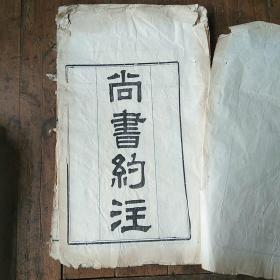 尚書約注